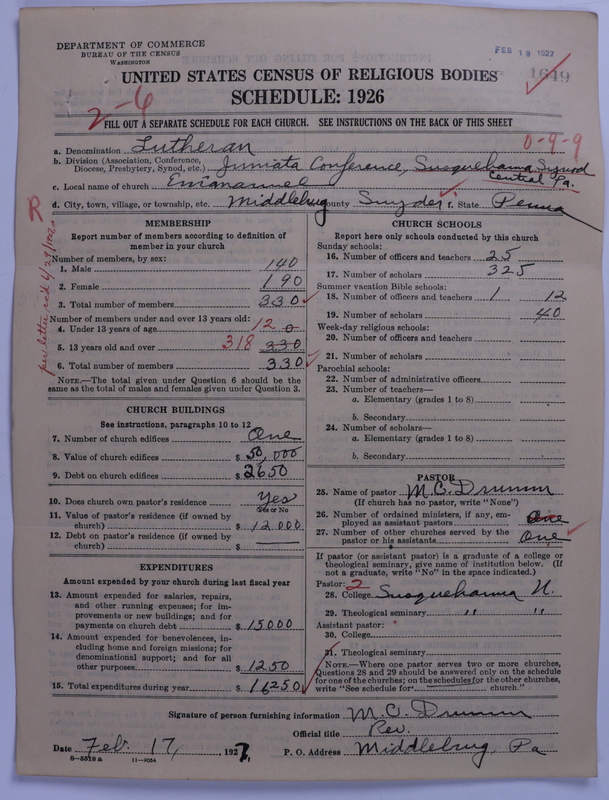 DEPARTMENT OF COMMERCE
BUREAU OF THE CENSUS
WASHINGTON
FEB 18 1927
1649
UNITED STATES CENSUS OF RELIGIOUS BODIES
SCHEDULE: 1926
2-6
FILL OUT A SEPARATE SCHEDULE FOR EACH CHURCH. SEE INSTRUCTIONS ON THE BACK OF THIS SHEET
0-9-9
a. Denomination Lutheran
b. Division (Association, Conference,
Diocese, Presbytery, Synod, etc.) Juniata Conference, Susquehanna Synod
Central Pa.
c. Local name of church Emmanuel
d. City, town, village, or township, etc. Middleburg County Snyder f. State Penna
R
per letter rec'd 4/29/1927
MEMBERSHIP
Report number of members according to definition of
member in your church
Number of members, by sex:
1. Male 140
2. Female 190
3. Total number of members 330
Number of members under and over 13 years old:
4. Under 13 years of age 12 0
5. 13 years old and over 318 330
6. Total number of members 330
NOTE.—The total given under Question 6 should be the
same as the total of males and females given under Question 3.
CHURCH BUILDINGS
See instructions, paragraphs 10 to 12
7. Number of church edifices One
8. Value of church edifices $ 50,000
9. Debt on church edifices $ 2650
10. Does church own pastor's residence Yes
Yes or No
11. Value of pastor's residence (if owned by
church) $ 12000
12. Debt on pastor's residence (if owned by
church) $ —
EXPENDITURES
Amount expended by your church during last fiscal year
13. Amount expended for salaries, repairs,
and other running expenses; for im-
provements or new buildings; and for
payments on church debt $ 15000
14. Amount expended for benevolences, in-
cluding home and foreign missions; for
denominational support; and for all
other purposes $ 1250
15. Total expenditures during year $ 16250
CHURCH SCHOOLS
Report here only schools conducted by this church
Sunday schools:
16. Number of officers and teachers 25
17. Number of scholars 325
Summer vacation Bible schools:
18. Number of officers and teachers 1 12
19. Number of scholars 40
Week-day religious schools:
20. Number of officers and teachers
21. Number of scholars
Parochial schools:
22. Number of administrative officers
23. Number of teachers—
a. Elementary (grades 1 to 8)
b. Secondary
24. Number of scholars—
a. Elementary (grades 1 to 8)
b. Secondary
PASTOR
25. Name of pastor M. C. Drumm
(If church has no pastor, write "None")
26. Number of ordained ministers, if any, em-
ployed as assistant pastors One
27. Number of other churches served by the
pastor or his assistants One
If pastor (or assistant pastor) is a graduate of a college or
theological seminary, give name of institution below. (If
not a graduate, write "No" in the space indicated.)
Pastor: 2
28. College Susquehanna U.
29. Theological seminary " "
Assistant pastor:
30. College
31. Theological seminary
NOTE.—Where one pastor serves two or more churches,
Questions 28 and 29 should be answered only on the schedule
for one of the churches; on the schedules for the other churches,
write "See schedule for church."
Signature of person furnishing information M. C. Drumm
Official title Rev.
Date Feb. 17, 1927. P. O. Address Middleburg, Pa
8-5519 a 11-9054